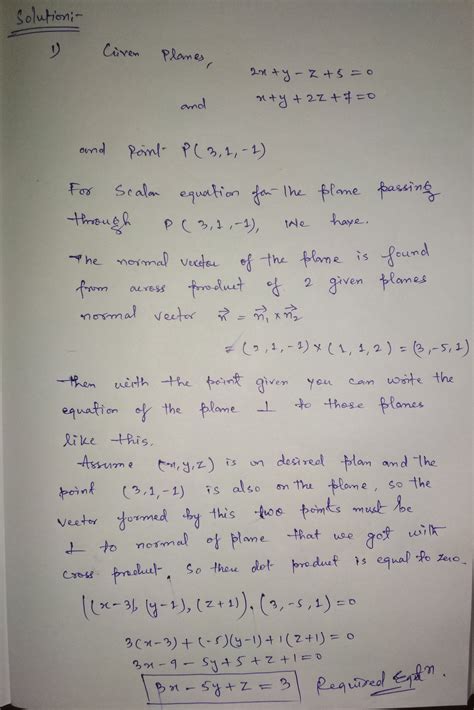 Solution:-
1) Given Planes,
2x+y-z+5=0
and x+y+2z+7=0
and Point P(3,1,-1)
For Scalar equation for the plane passing
through P(3,1,-1), We have.
The normal vector of the plane is found
from across product of 2 given planes
normal vector n⃗ = n⃗₁ × n⃗₂
= (2,1,-1) × (1,1,2) = (3,-5,1)
Then with the point given you can write the
equation of the plane ⊥ to those planes
like this.
Assume (x,y,z) is on desired plan and the
point (3,1,-1) is also on the plane, so the
vector formed by this two points must be
⊥ to normal of plane that we got with
cross product. So then dot product is equal to zero.
((x-3), (y-1), (z+1)).(3,-5,1)=0
3(x-3)+(-5)(y-1)+1(z+1)=0
3x-9-5y+5+z+1=0
3x-5y+z=3 Required Eqn.